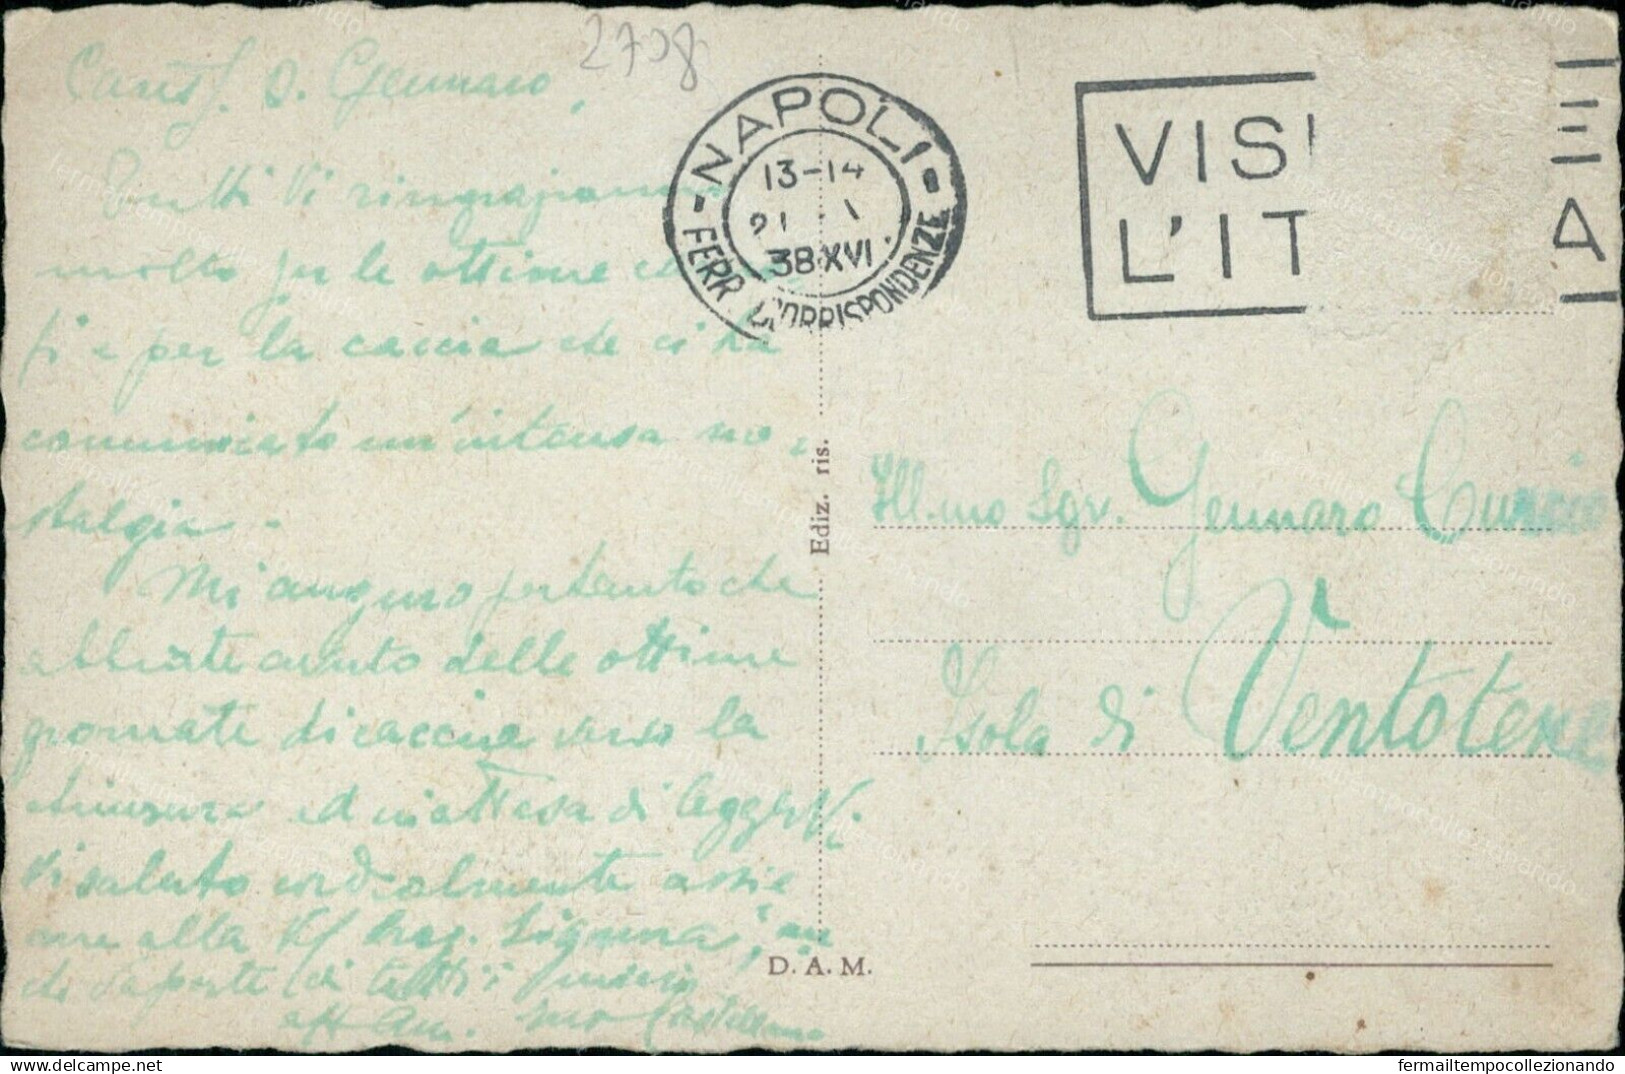 2708
D. Gennaro,
Tutti Vi ringraziamo
molto per le ottime
fi e per la caccia che ci ha
comunicato un'intensa no-
stalgia.
Mi auguro pertanto che
abbiate avuto delle ottime
giornate di caccia verso la
chiusura ed in attesa di leggerVi
Vi saluto cordialmente assie
me alla Signora, an
che da parte di tutti i
Castellano
NAPOLI
13-14
38 XVI
FERR CORRISPONDENZE
VISI E
L'IT A
Ediz. ris.
Ill.mo Sgr. Gennaro
Isola di Ventotene
D. A. M.
fermailtempocollezionando